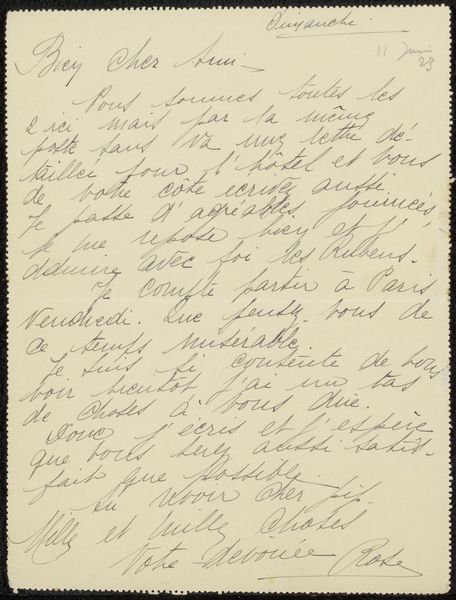 Dimanche.
11 Juin
23
Bien cher Ami –
Nous sommes toutes les
2 ici mais par la même
poste sans va une lettre dé-
taillée pour l'hôtel et vous
de votre côté écrivez aussi.
Je passe d'agréables journées,
je me repose bien et j'
admire avec foi les Rubens.
Je compte partir à Paris
Vendredi. Que pensez vous de
ce temps misérable
Je suis si contente de vous
voir bientôt j'ai un tas
de choses à vous dire.
Donc j'écris et j'espère
que vous serez aussi satis-
fait que possible.
Au revoir cher
Mille et mille choses
Votre dévouée Rose